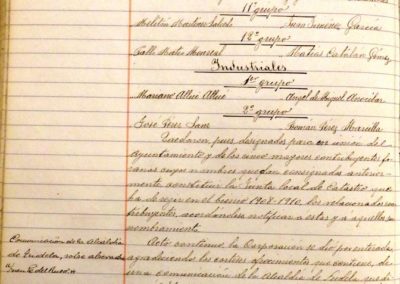 11º grupo
Melitón Martínez Salcedo Juan Jiménez García
12º grupo
Matías Catalán Gómez
Industriales
1er grupo
Mariano Allué Allué Angel de Miguel
2º grupo
José Pérez Sanz Román Pérez
Quedaron pues designados para en union del
Ayuntamiento y de los cinco mayores contribuyentes fo-
raneos cuyos nombres quedan consignados anterior-
mente, constituir la Junta local de Catastro que
ha de regir en el bienio 1908-1910, los relacionados con-
tribuyentes, acordándose notificar a estos y a aquellos su
nombramiento.
Comunicación de la Alcaldía
de Tudela, sobre
Acto continuo la Corporacion se dio por enterada
agradeciendo los corteses ofrecimientos que contiene, de
una comunicación de la Alcaldía de Tudela